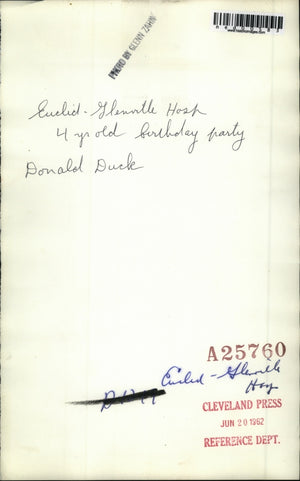 PHOTO BY GLENN ZAHN
Euclid-Glenville Hosp
4 yr old birthday party
Donald Duck
A25760
Euclid-Glenville
Hosp
CLEVELAND PRESS
JUN 20 1962
REFERENCE DEPT.